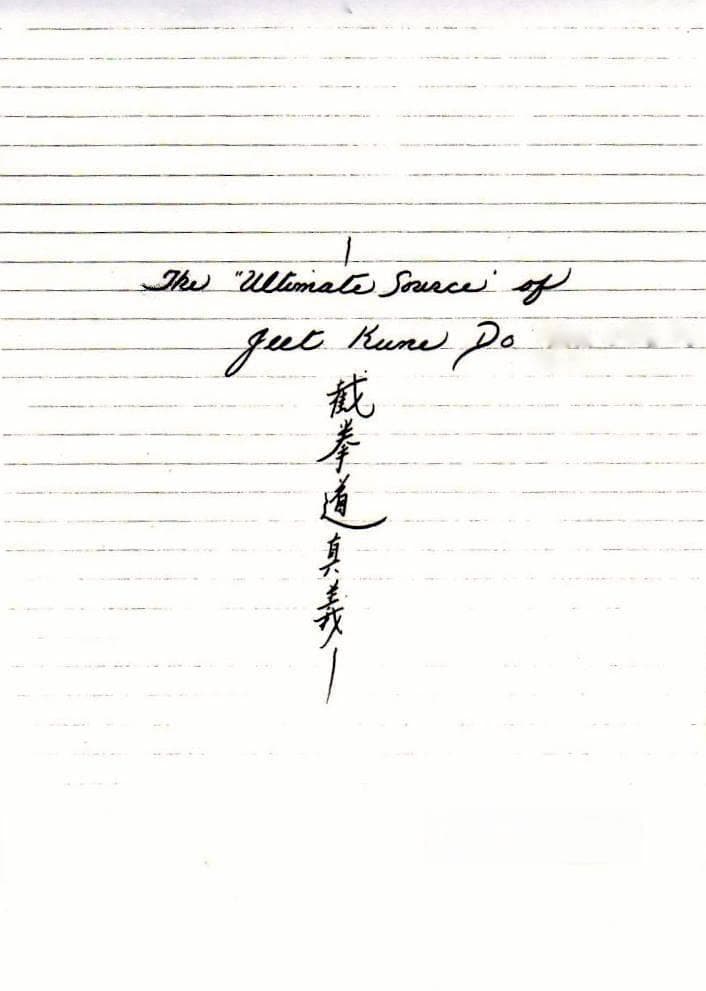 The "Ultimate Source' of
Jeet Kune Do
截拳道真義